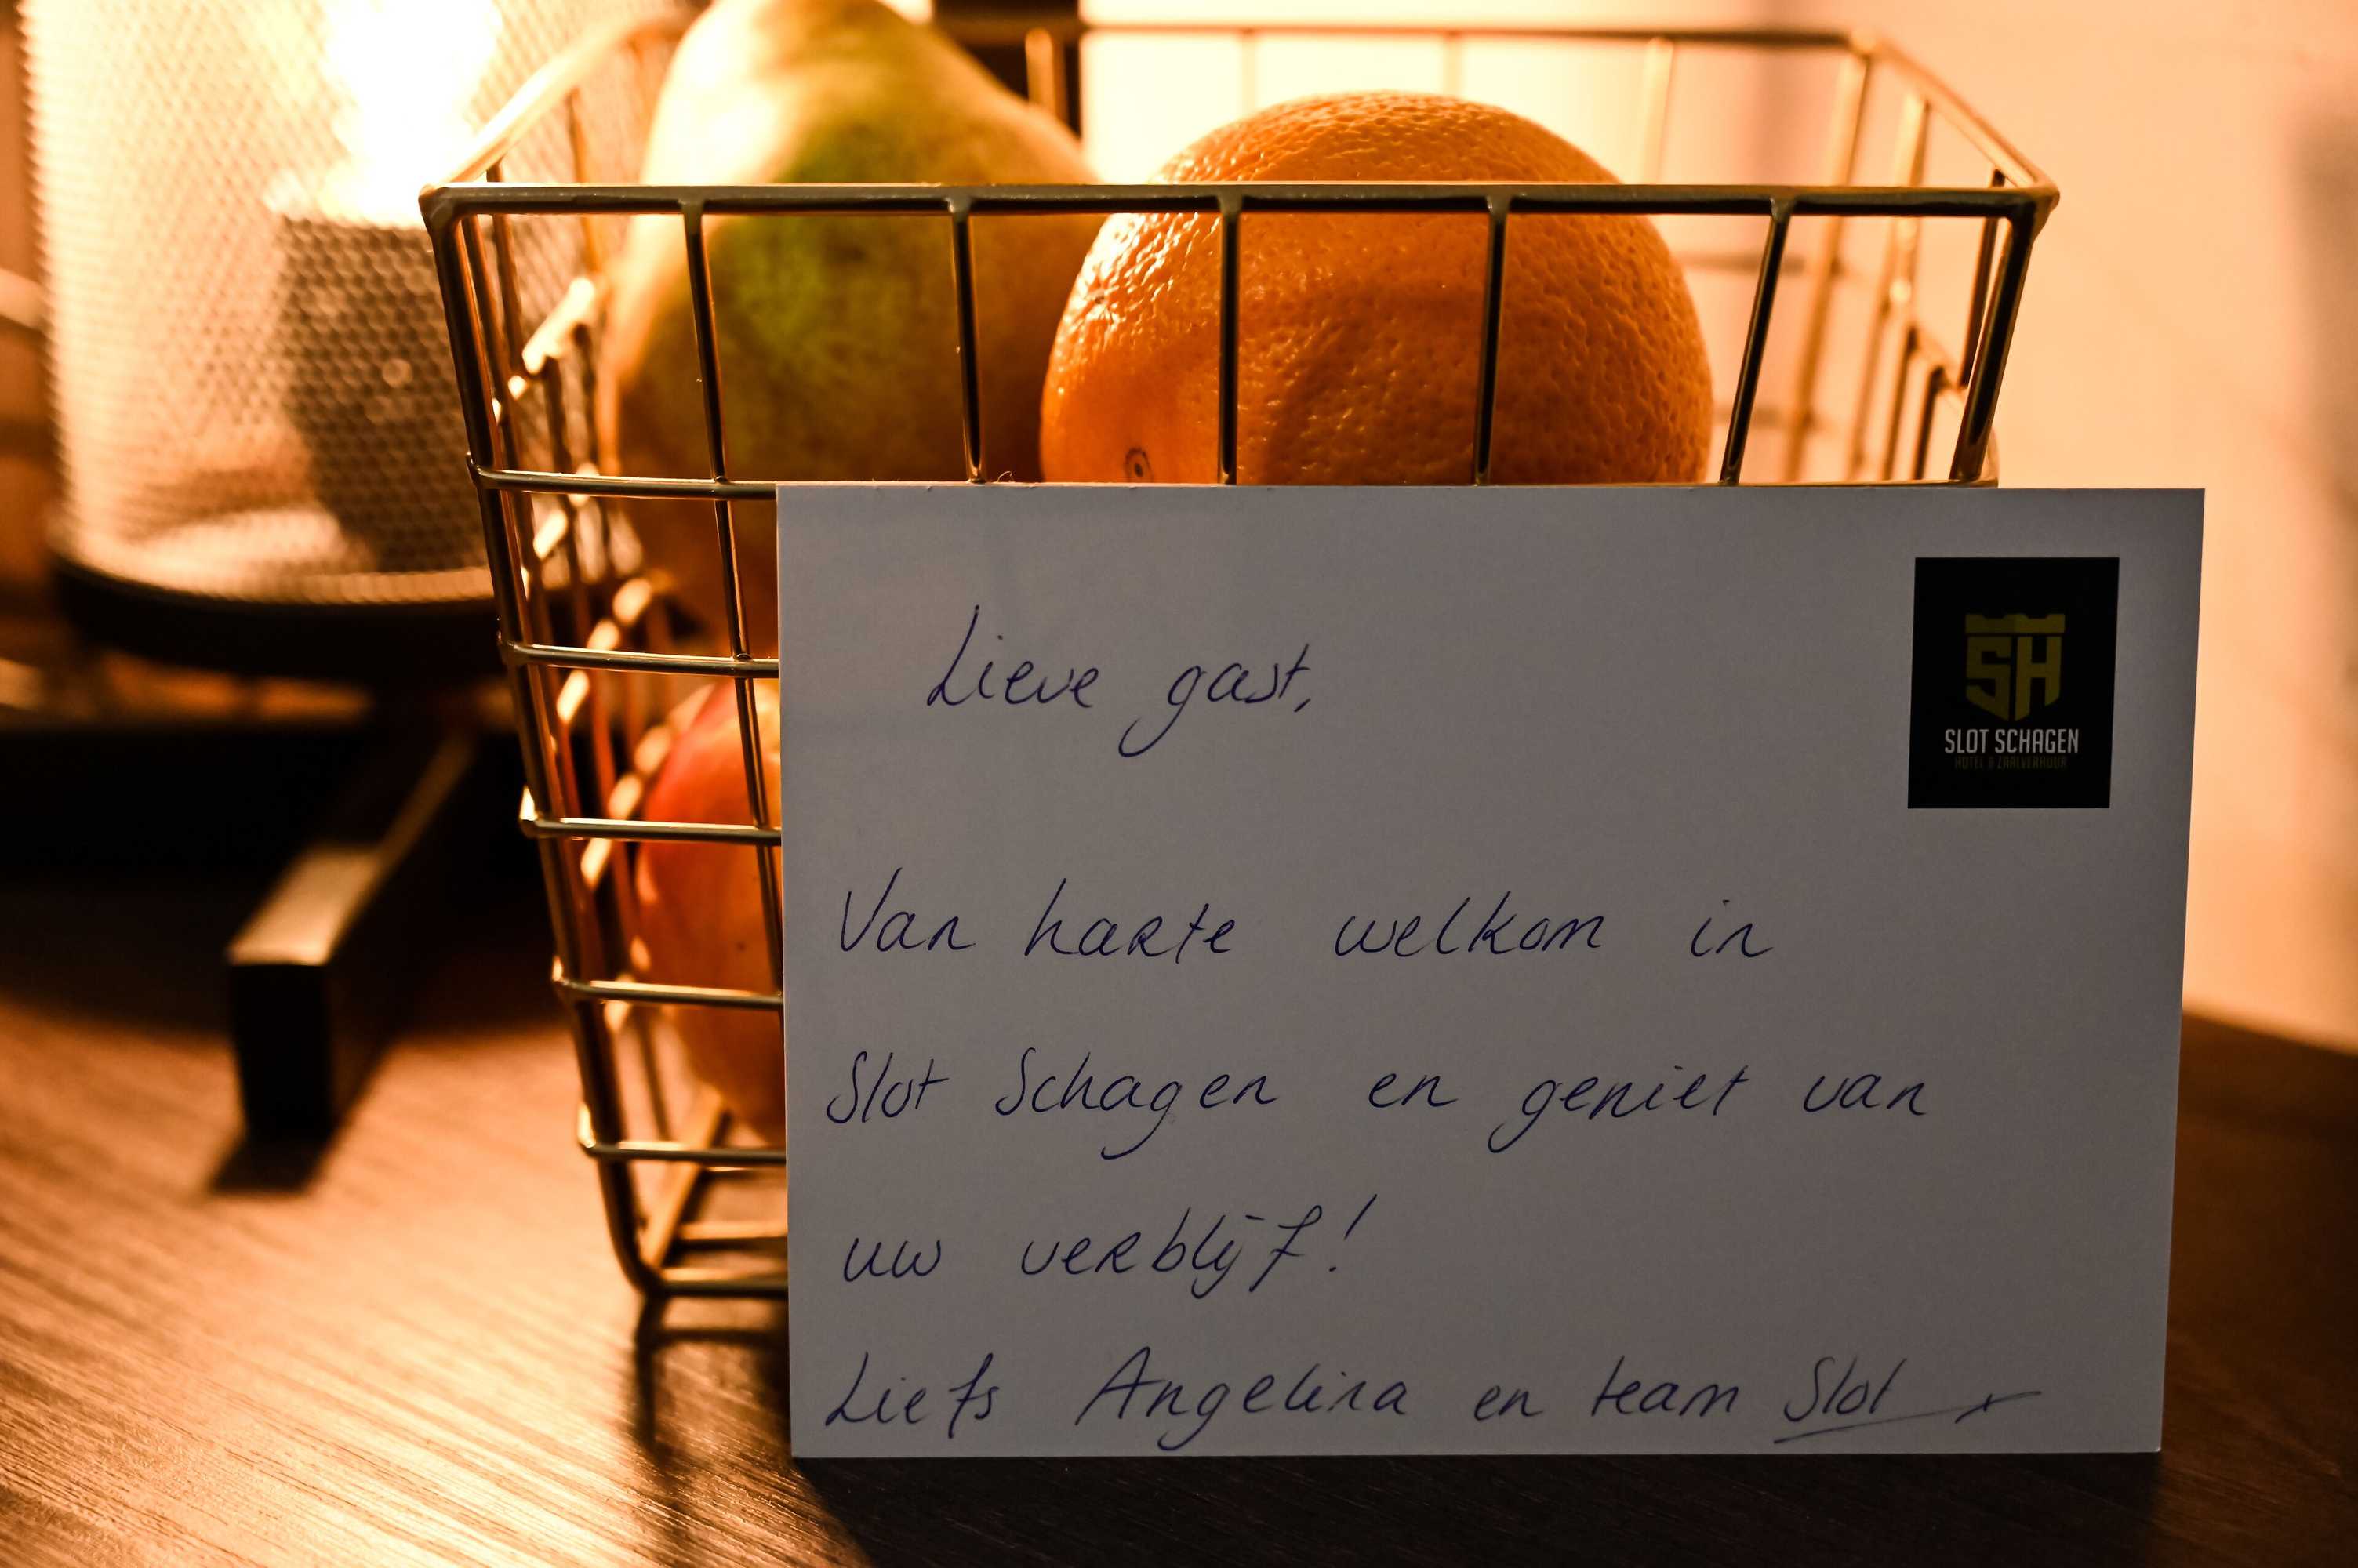 Lieve gast,
SH
SLOT SCHAGEN
HOTEL & ZAALVERHUUR
Van harte welkom in
Slot Schagen en geniet van
uw verblijf!
Liefs Angelina en team Slot x